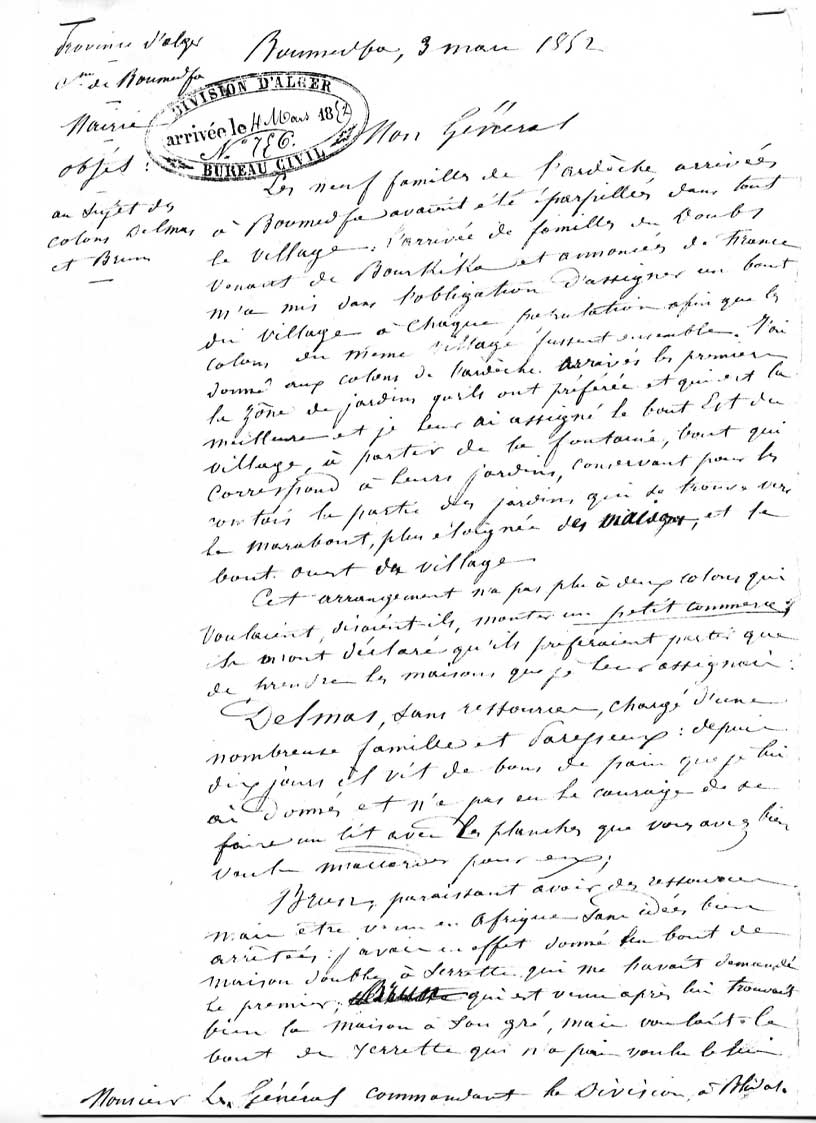 Province d'alger
Cne de Boumedfa
Mairie
objet :
au sujet des
colons Delmas
et Brun
Boumedfa, 3 mars 1852
DIVISION D'ALGER
arrivée le 4 Mars 1852
N° 756.
BUREAU CIVIL
Mon Général
Les neuf familles de l'ardèche arrivées
à Boumedfa avaient été éparpillées dans tout
le village ; l'arrivée de familles du Doubs
venant de Bourkika et annoncées de France
m'a mis dans l'obligation d'assigner un bout
du village à chaque population afin que les
colons du même village fussent ensemble. J'ai
donné aux colons de l'ardèche arrivés les premiers
la zône de jardins qu'ils ont préférée et qui est la
meilleure et je leur ai assigné le bout Est du
village, à partir de la fontaine, bout qui
correspond à leurs jardins, conservant pour les
comtois la partie des jardins qui se trouve vers
le marabout, plus éloignée des maisons, et le
bout ouest du village
Cet arrangement n'a pas plu à deux colons qui
voulaient, disaient-ils, monter un petit commerce ;
ils m'ont déclaré qu'ils préféraient partir que
de prendre les maisons que je leur assignais :
Delmas, sans ressources, chargé d'une
nombreuse famille et paresseux : depuis
dix jours il vit de bons de pain que je lui
ai donnés et n'a pas eu le courage de se
faire un lit avec les planches que vous avez bien
voulu m'accorder pour eux ;
Brun, paraissant avoir des ressources
mais être venu en Afrique sans idées bien
arrêtées : j'avais en effet donné un bout de
maison double à Serrette qui me l'avait demandé
le premier ; Brun qui est venu après lui trouvait
bien la maison à son gré, mais voulait le
bout de Serrette qui n'a pas voulu le lui
Monsieur Le Général commandant la Division, à Blidah.